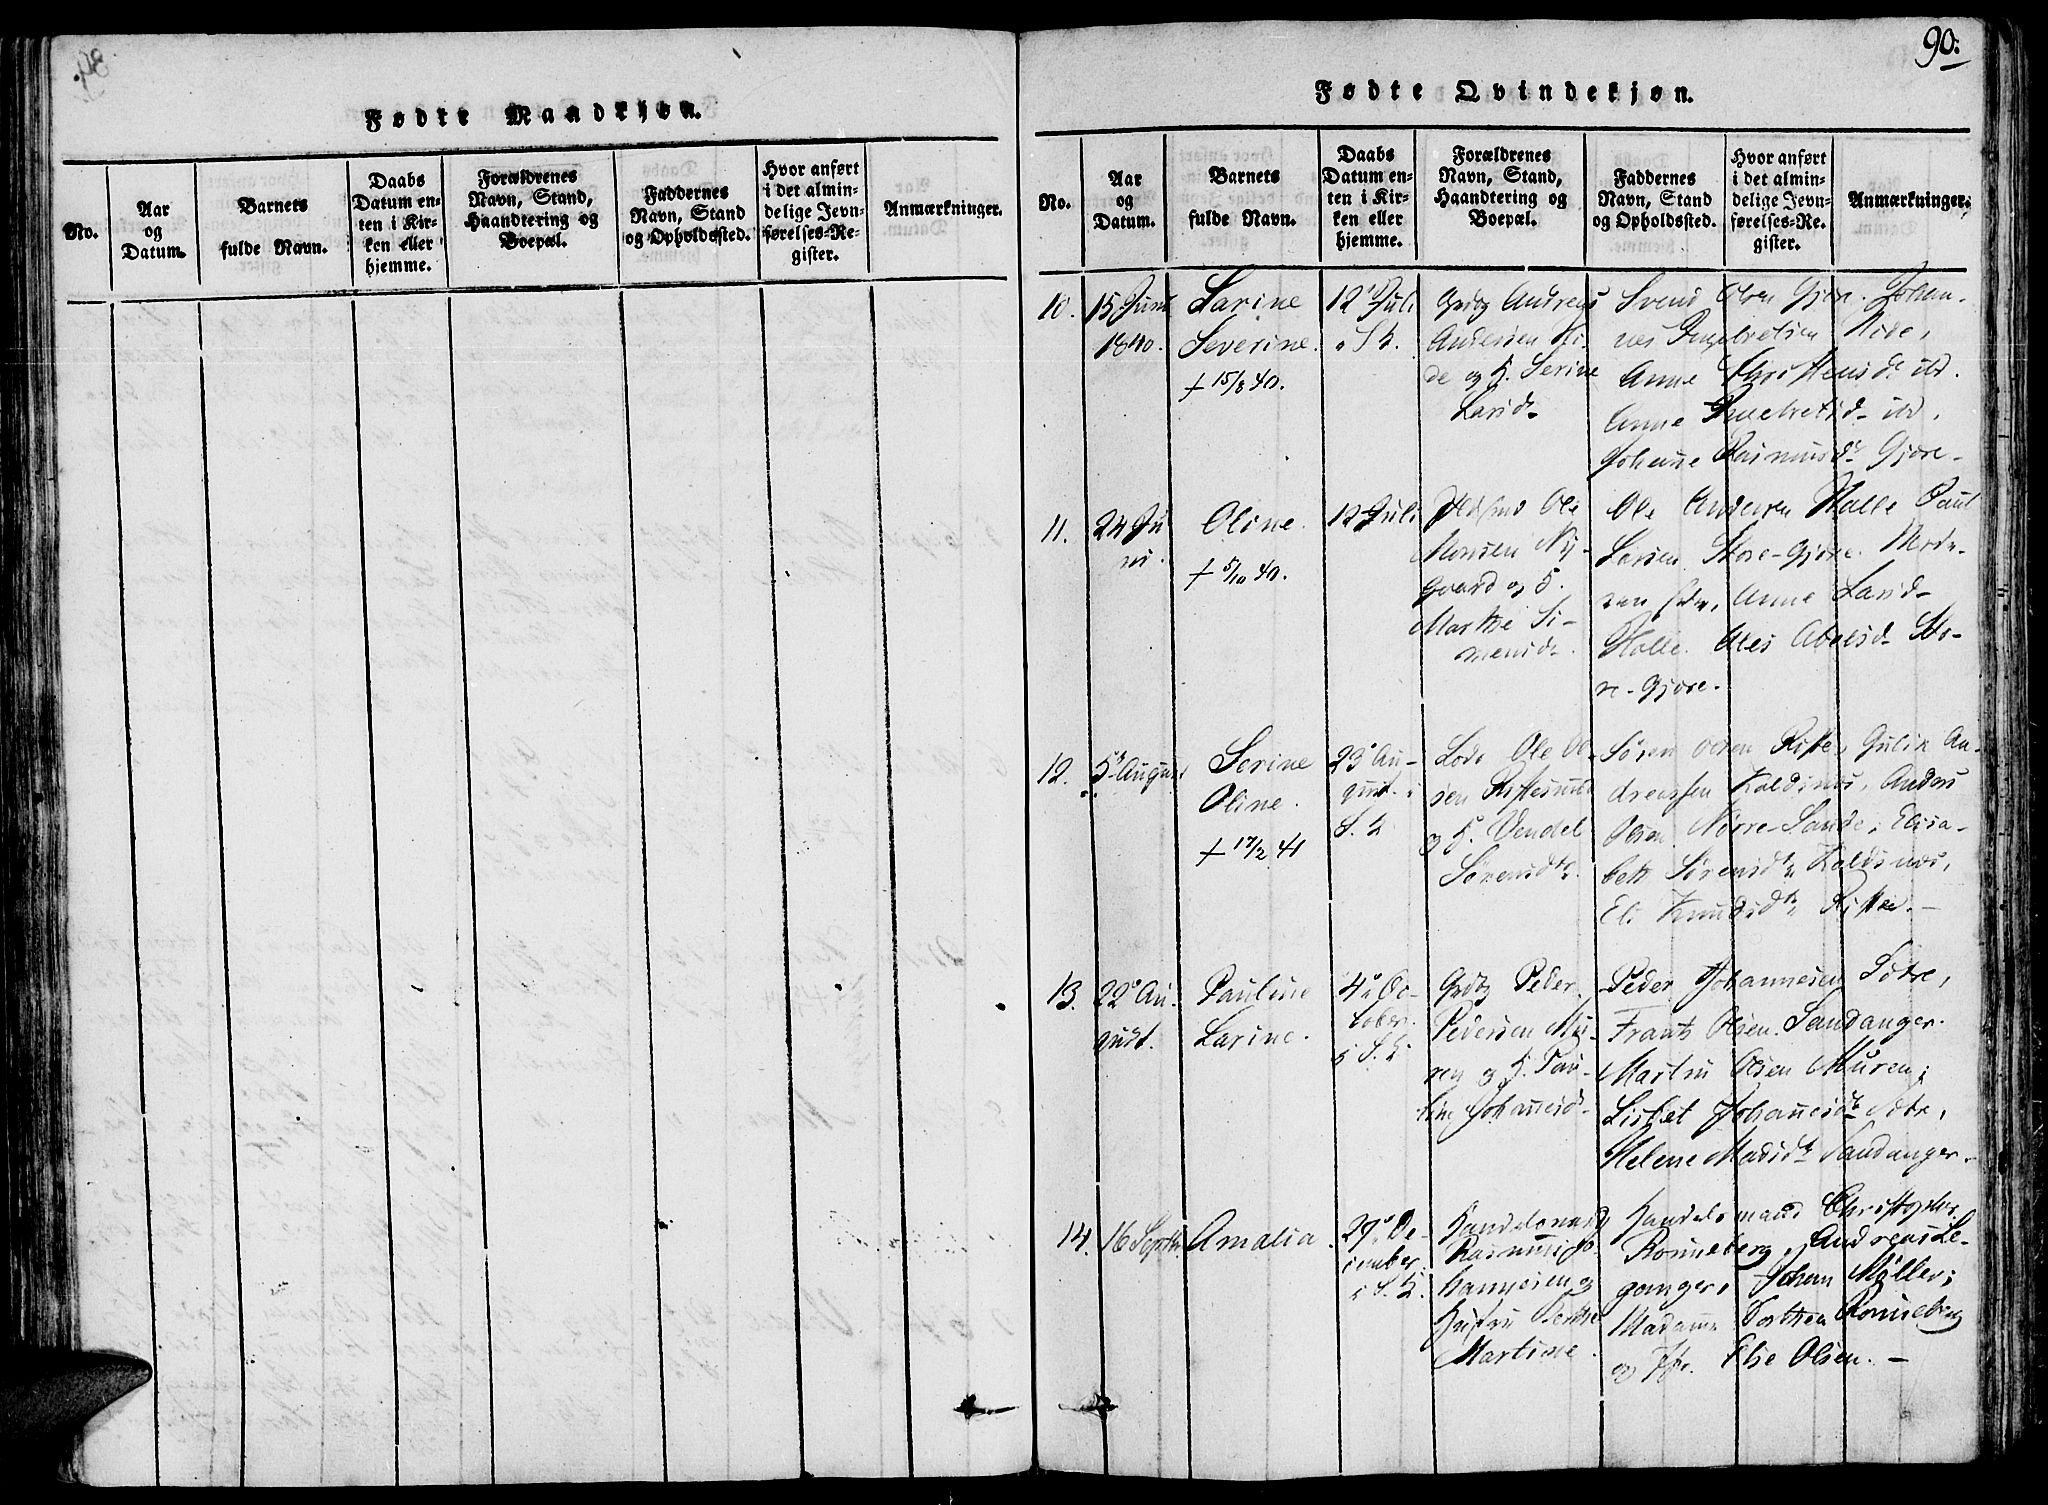 90.
Fødte Mandkjøn.
No.
Aar
og
Datum.
Barnets
fulde Navn.
Daabs
Datum en-
ten i Kir-
ken eller
hjemme.
Forældrenes
Navn, Stand,
Haandtering og
Boepæl.
Faddernes
Navn, Stand
og Opholdssted.
Hvor anført
i det almin-
delige Jevn-
førelses-Re-
gister.
Anmærkninger.
Fødte Qvindekjøn.
No.
Aar
og
Datum.
Barnets
fulde Navn.
Daabs
Datum en-
ten i Kir-
ken eller
hjemme.
Forældrenes
Navn, Stand,
Haandtering og
Boepæl.
Faddernes
Navn, Stand
og Opholdssted.
Hvor anført
i det almin-
delige Jevn-
førelses-Re-
gister.
Anmærkninger.
10.
15 Juni
1840.
Larine
Severine.
+ 15/8 40.
12 Juli
Andreas
Andersen Ni-
de og H. Serine
Larsd.
Svend Olsen Gjøre. Johan-
nes Ingebretsen Nide,
Anne Christensd. ibd.
Anne Ingebretsd. ibd.
Johanne Rasmusd. Gjøre.
11.
24 Ju
ni.
Oline.
+ 5/10 40.
12 Juli
Ole
Monsen Ny-
gaard og H.
Marthe Si-
mensd.
Ole Andersen Halle Paul
Larsen Store-Gjøre. Mode-
ren selv, Anne Larsd.
Halle. Abelsd. Sto-
re-Gjøre.
12.
5 August
Serine
Oline.
+ 17/2 41
23 Au-
gust.
Lods Ole Ol-
sen Ristesund
og H. Vendel
Sørensdtr.
Søren Olsen Riste, Gulik An-
dreassen Koldsnæs, Anders
Olsen Nørre-Sande, Elisa-
beth Sørensdtr Koldsnæs,
Eli Knudsdtr Riste.
13.
22 Au-
gust.
Pauline
Larine.
4 Oc-
tober.
Peder
Pedersen Mu-
ren og H. Pau-
line Johannesd.
Peder Johannesen Sætre,
Frants Olsen Sandanger.
Martin Olsen Muren,
Lisbet Johannesdtr Sætre,
Helene Madsdtr Sandanger.
14.
16 Septbr
Amalia
27 De-
cember
Handelsmand
Rasmus Jo-
hannesen og
Hustru Berthe
Martine.
Handelsmand Christopher
Rønneberg, Andreas Le-
ganger, Johan Møller,
Madame Dorthea Rønneberg
og Jfr. Else Olsen.